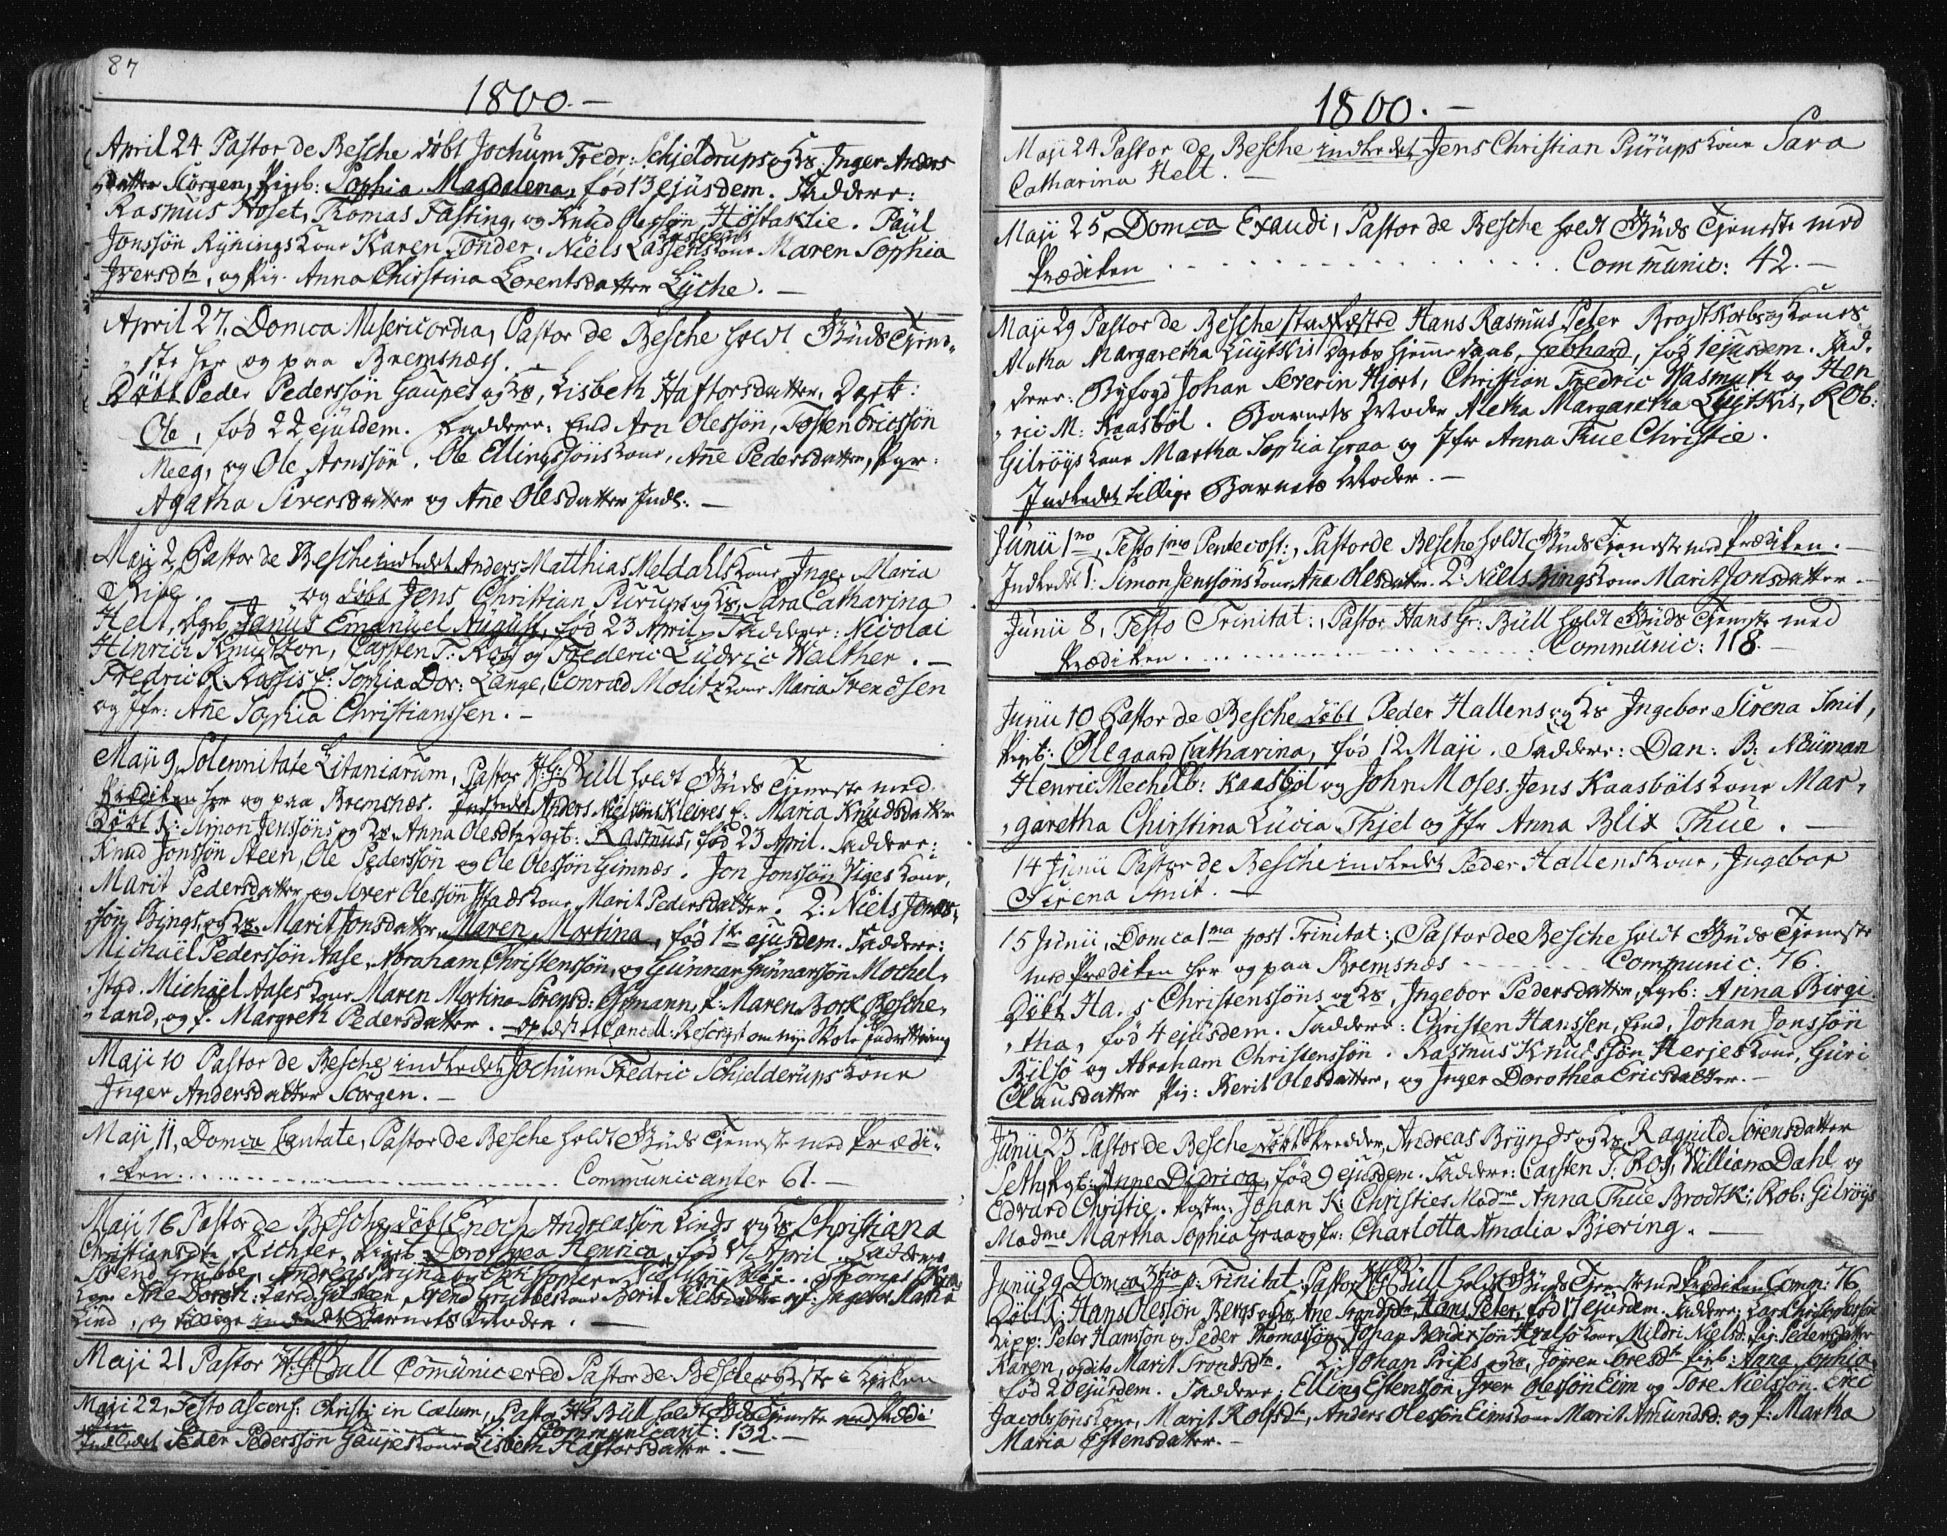 87
1800.—
April 24 Pastor de Besche döbt Jochum Fredr: Schjeldrups og Hs. Inger Anders
datter Scorgen, Pigeb: Sophia Magdalena, föd 13 ejusdem. Faddere:
Rasmus Roset, Thomas Fasting, og Knud Olessön Höstaklie. Paul
Jonssön Rynings Kone Karen Tonder, Niels Lassens Kone Maren Sophia
Iversdtr, og Pig. Anna Christina Lorentsdatter Lyche.—
April 27, Domca Misericordia, Pastor de Besche holdt Guds Tjene-
ste her og paa Bremsnæs.
Döbt Peder Pederssön Gaupes og Hs, Lisbeth Haftorsdatter,
Ole, föd 22 ejusdem. Faddere: Arn Olessön, Tosten Ericssön
Meeg, og Ole Arnssön. Ole Ellingssöns Kone, Ane Pedersdatter, Pgr:
Agatha Siversdatter og Ane Olesdatter Indl:—
Maji 2, Pastor de Besche indledet Anders Matthias Meldahls Kone Inger Maria
Ribe. — og döbt Jens Christian Pürups og Hs, Sara Catharina
Helt, Dgb Janus Emanuel August, föd 23 April. Faddere: Nicolai
Hinrich Knudtzon, Carsten T: Ross og Frederic Ludvic Walther.—
Fredric R: Kassis f: Sophia Dor: Lange, Conrad Molitz Kone Maria Svendsen
og Jfr: Ane Sophia Christianssen.—
Maji 9, Solennitate Litaniarum, Pastor H: G: Bull holdt Guds Tjeneste med
Prædiken her og paa Bremsnæs. Indledet Anders Nielssöns Kleives f: Maria Knudsdatter
Döbt 1: Simon Jenssöns og Hs Anna Olesdtr Dgb: Rasmus, föd 23 April. Faddere:
Knud Jonssön Steen, Ole Pederssön og Ole Olessön Gimnæs. Jon Jonssön Viges Kone,
Marit Pedersdatter og Iver Olessön Stads Kone Marit Pedersdatter. 2: Niels Jonas-
sön Bings, og Hs. Marit Jonsdatter, Maren Martina, föd 1te ejusdem. Faddere:
Michaël Pederssön Aase, Abraham Christenssön, og Gunnar Gunnarssön Mochel-
stad. Michaël Aases Kone Maren Martina Sörensd: Ohmann, f: Maren Bork Besche-
land, og f. Margreth Pedersdatter.— oplæst Cancell: Rescript om nye Skole Indretning
Maji 10 Pastor de Besche indledet Jochum Fredric Schjelderups Kone
Inger Andersdatter Scorgen.—
Maji 11, Domca Cantate, Pastor de Besche holdt Guds Tjeneste med Prædi-
ken. Communicanter 61.—
Maji 16 Pastor de Besche döbt Enoch Andreassön Linds og Hs Christiana
Christiansdtr Richter, Pigeb: Dorothea Henrica, föd April. Faddere
Svend Grubbe, Andreas
Kone Ane Doroth:
Lind, og tillige indledet Barnets Moder.—
Maji 21 Pastor H: G: Bull Comunicered Pastor de Besche og Hustr i Kirken
Maji 22, Festo ascens: Christi in Cælum, Pastor H: G: Bull holdt Guds Tjeneste med Prædi-
ken Communicant: 132.—
Indledet Peder Pederssön Gaupes Kone Lisbeth Haftorsdatter.—
1800.—
Maji 24 Pastor de Besche indledet Jens Christian Pürups Kone Sara
Catharina Helt.—
Maji 25, Domca Exaudi, Pastor de Besche holdt Guds Tjeneste med
Prædiken Communic: 42.—
Maji 29 Pastor de Besche stadfæsted Hans Rasmus Peter Brodtkorbs og Kones
Aletha Margaretha Luytkis Dgebs hjemmedaab, Gebhard, föd 1 ejusdem. Fad-
dere: Byfogd Johan Severin Hjort, Christian Fredric Wasmuth og Hen-
ric M: Kaasböl. Barnets Moder Aletha Margaretha Luytkis, Rob:
Gilröys Kone Martha Sophia Graa og Jfr Anna Thue Christie.
Indledet tillige Barnets Moder.—
Junii 1mo, Festo 1mo Pentecost:, Pastor de Besche holdt Guds Tjeneste med Prædiken.—
Indledt 1: Simon Jenssöns Kone Ana Olesdatter. 2: Niels Bings Kone Marit Jonsdatter.—
Junii 8, Festo Trinitat:, Pastor Hans Gr: Bull holdt Guds Tjeneste med
Prædiken. Communic: 118.—
Junii 10 Pastor de Besche döbt Peder Hallens og Hs Ingebor Sirena Smit,
Pigeb: Olegaard Catharina, föd 12 Maji. Faddere: Dan: B: Neuman
Henric Mechelb: Kaasböl og John Moses. Jens Kaasböls Kone Mar-
garetha Christina Lucia Thjel og Jfr Anna Blix Thue.—
14 Junii Pastor de Besche indledet Peder Hallens Kone, Ingebor
Sirena Smit.—
15 Junii, Domca 1ma post Trinitat:, Pastor de Besche holdt Guds Tjeneste
med Prædiken her og paa Bremsnæs Communic: 76.
Döbt Ha.s Christenssöns og Hs, Ingebor Pedersdatter, Pgeb: Anna Birgi-
tha, föd 4 ejusdem. Faddere: Christen Hanssen, Johan Jonssön
Bilsö og Abraham Christenssön. Rasmus Knudssön Herjes Kone, Guri
Clausdatter Pig: Berit Olesdatter, og Inger Dorothea Ericsdatter.—
Junii 23 Pastor de Besche döbt Skredder Andreas Brynds og Hs Ragnild Sörensdatter
Seth, Pgb: Anne Didrica, föd 9 ejusdem. Faddere: Carsten T. Ros, Willion Dahl, og
Edvard Christie. Johan K: Christies Madme Anna Thue Brodtk: Rob: Gilröys
Madme Martha Sophia Graa og fr: Charlotta Amalia Bjering.—
Junii 29 Domca 3tia p: Trinitat, Pastor H: G: Bull holdt Guds Tjeneste med Prædiken Comm: 76
Döbt 1: Hans Olessön Bergs og Hs, Ane Trondsdtr, Hans Peter, föd 17 ejusdem. Faddere: Lars Christophersön
Kipp: Peter Hanssön og Peder Thomassön, Johan Bendixsön Hvalsö Kone Mildri Nielsd: Pig: Pedersdatter
Karen, og dtr Marit Trondsdtr. 2: Johan Prises og Hs, Jören Toresdtr Pigeb: Anna Sophia,
föd 20 ejusdem. Faddere: Elling Estenssön, Iver Olessön Eim og Tore Nielssön. Eric
Jacobssöns Kone, Marit Rolfsdtr, Anders Olessön Eims Kone Marit Amundsd: og P: Martha
Maria Estensdatter.—